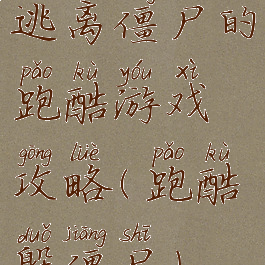 逃离僵尸的
pǎo kù yóu xì
跑酷游戏
gōng lüè pǎo kù
攻略(跑酷
duǒ jiāng shī
躲僵尸)